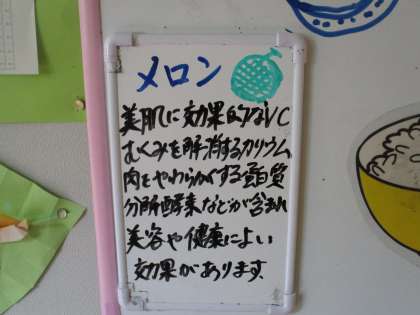 メロン
美肌に効果的なVC
むくみを解消するカリウム
肉をやわらかくする蛋白質
分解酵素などが含まれ
美容や健康によい
効果があります